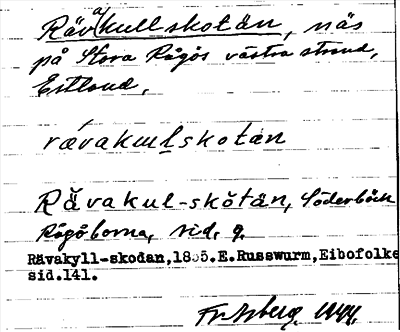 Rävakullskotän, näs
på Stora Rågös västra strand,
Estland.
rävakullskotän
Rävakul-skötän, Söderbäck
Rågöborna, sid. 9.
Rävakyll-skodan, 1855. E. Russwurm, Eibofolke
sid. 141.
1944.